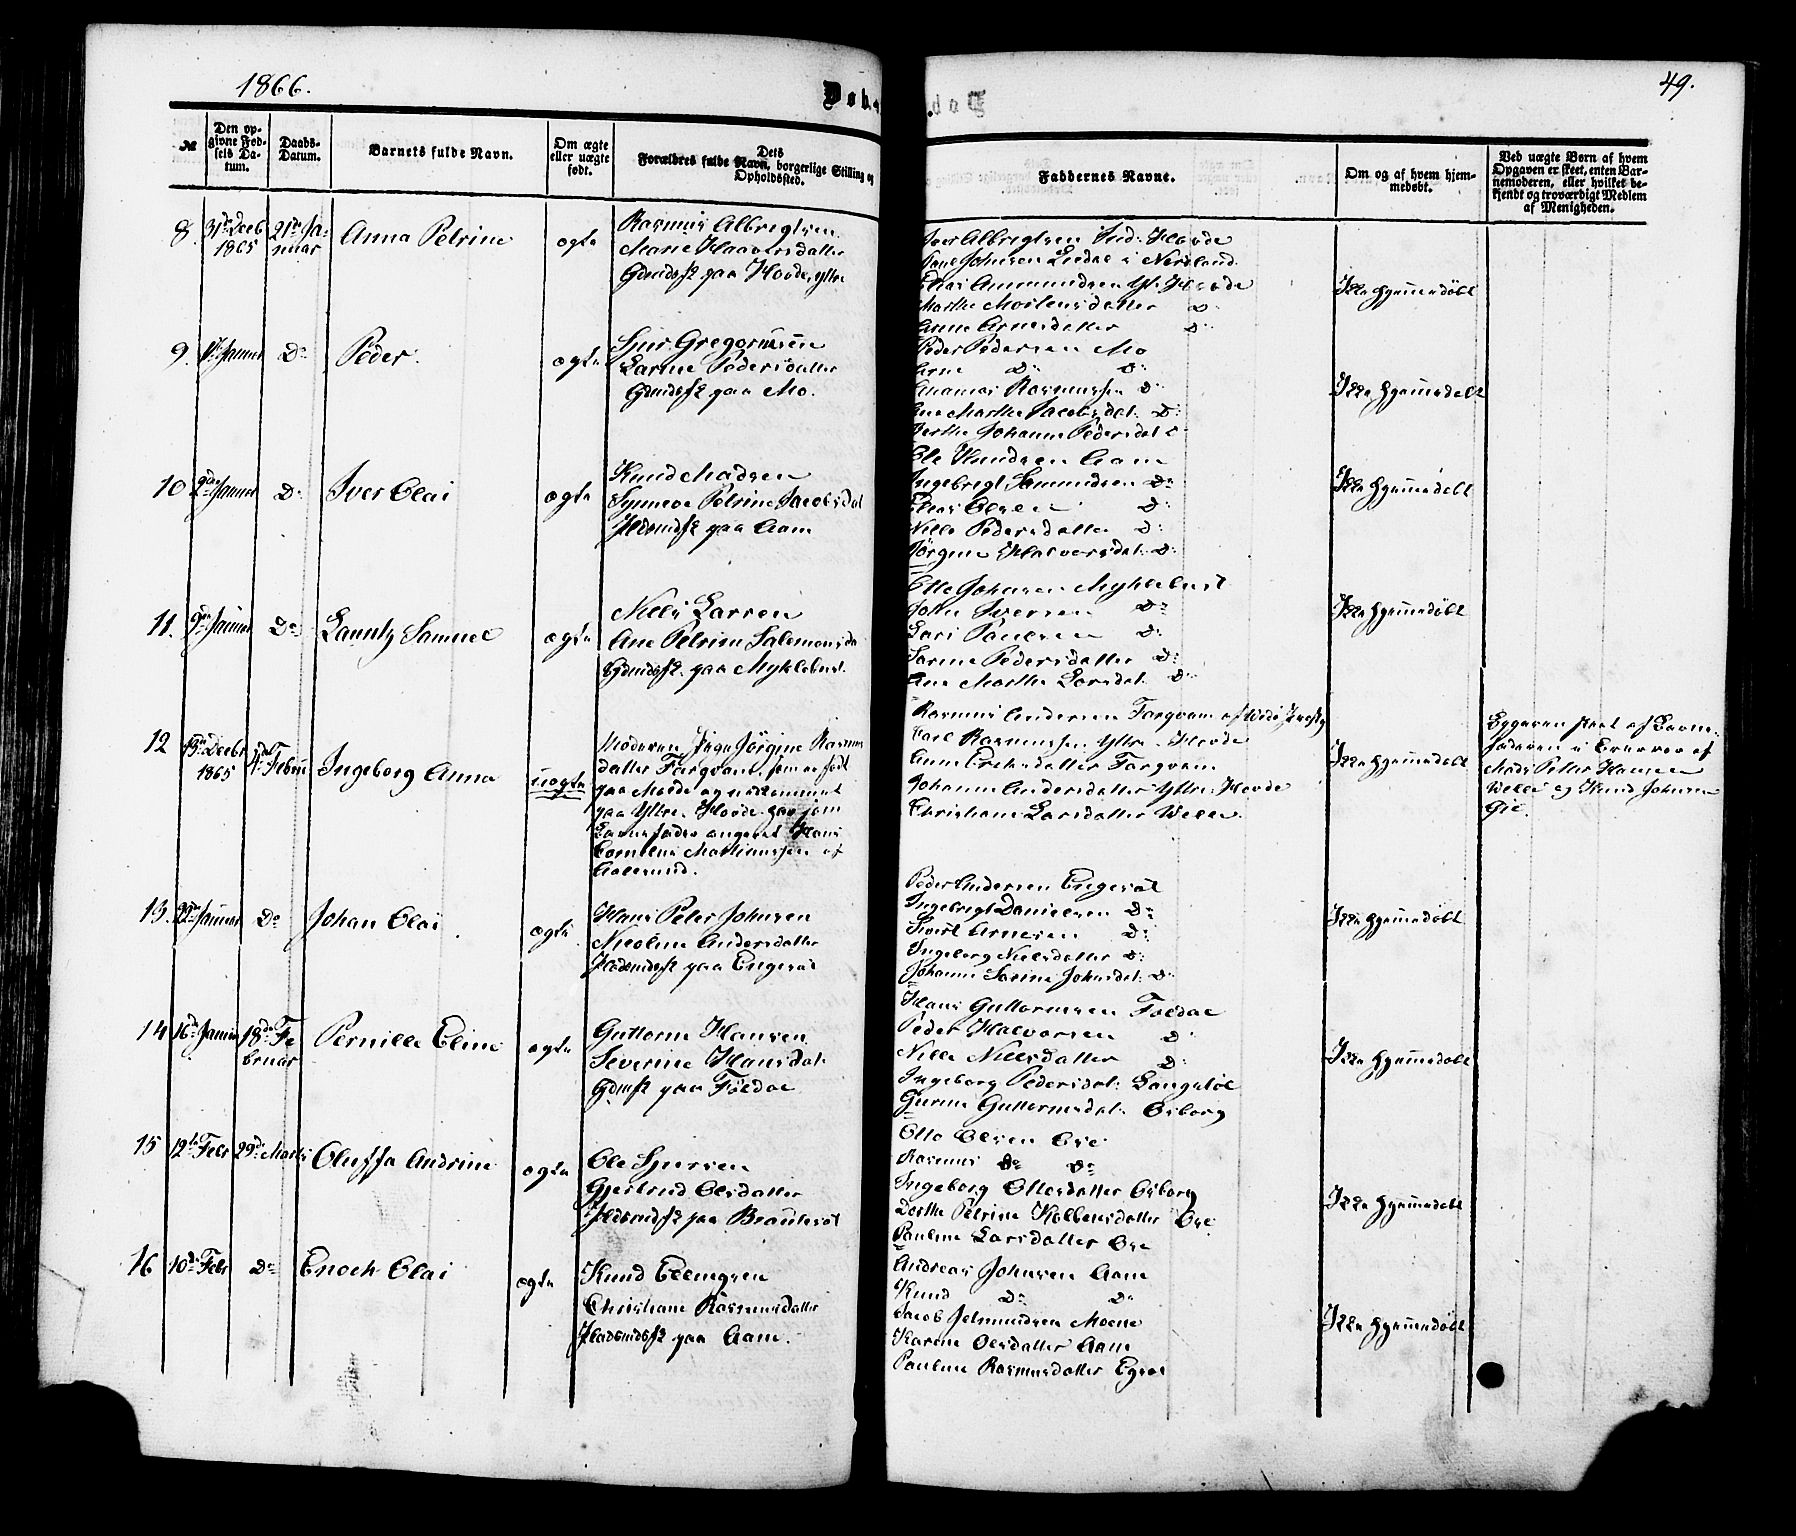 1866.
Døb.
49.
№
Den op-
givne Fød-
sels Da-
tum.
Daabs-
Datum.
Barnets fulde Navn.
Om ægte
eller uægte
født.
Dets
Forældres fulde Navn, borgerlige Stilling og
Opholdssted.
Faddernes Navne.
Om og af hvem hjem-
medøbt.
Ved uægte Børn af hvem
Opgaven er skeet, enten Bar-
nemoderen, eller hvilket be-
kjendt og troværdigt Medlem
af Menigheden.
8. 31te Decb 1865
21de Januar
Anna Petrine
ægte
Rasmus Albregtsen
Marie Haaversdatter
Gdmdsf paa Hovde, ytre
Iver Albregtsen Ind. Hovde
Johnsen i Nordland
Elias Ammundsen Yt. Hovde
Marthe Mortensdatter Do
Anne Arnesdatter Do
Ikke hjemmedøbt
9. Januar
Do
Peder.
ægte
Sjur Gregoriusen
Larine Pedersdatter
Gdmdsf paa Mo.
Peder Pedersen Mo
Arne Do Do
Rasmussen Do
Ane Marthe Jacobsdat. Do
Berthe Johanne Pedersdat
Ikke hjemmedøbt
10 2den Januar
Do
Iver Olai
ægte
Knud Madsen
Synneve Petrine Jacobsdat
Hdsmdsf paa Aam
Ole Knudsen Aam
Ingebrigt Samundsen Do
Elias Olsen Do
Nille Pedersdatter Do
Jørgine Halvorsdat. Do
Ikke hjemmedøbt
11. 9de Januar
Do
Lauritz Samuel
ægte
Nills Larsen
Ane Petrine Salemonsda
Gdmdsf. paa Myklebust.
Ole Johnsen Myklebust
John Iversen Do
Lars Paulsen Do
Sarine Pedersdatter Do
Ane Marthe Larsdat. Do
Ikke hjemmedøbt
12 13de Decbr 1865
4de Februar
Ingeborg Anna
uægte
Moderen Pige Jørgine Rasmus
datter Fargvam, som er født
paa Hovde og
paa Ytre Hovde har som
Barnefader angevet Hans
Cornelius Mathiassen af
Aalesund.
Rasmus Andersen Fargvam af
Carl Rasmussen Yttre Hovde
Anne Eriksdatter Fargvam
Johanne Andersdatter Yttre Hovde
Christiane Larsdatter Welle.
Ikke hjemmedøbt
Opgaven skeet af Barne-
faderen i Overvær af
Mads Peter Hansen
Welle og Knud Johnsen
13. 22de Januar
Do
Johan Olai
ægte
Hans Peter Johnsen
Nicoline Andersdatter
Hdsmdsf paa Engeset
Peder Andersen Engeset
Ingebrigt Danielsen Do
Sivert Arnesen Do
Ingeborg Nielsdatter Do
Johanne Sarine Johnsdat. Do
Ikke hjemmedøbt
14 16de Januar
18de Februar
Pernille Eline
ægte
Guttorm Hansen
Severine Hansdat.
Gdmsf paa Føldal
Hans Guttormsen Føldal
Peder Halvorsen Do
Nille Nielsdatter Do
Ingeborg Pedersdat: Langeløe
Gurine Guttormsdat: Osborg
Ikke hjemmedøbt
15 12te Febr
29de Marts
Oluffa Andrine
ægte
Ole Sjursen
Gjertrud Olsdatter
Hdsmdsf paa Brauteset
Otto Olsen Øie
Rasmus Do Do
Ingeborg Ottosdatter Osborg
Dorthe Petrine Kolbensdatter Øie
Pauline Larsdatter Øie
Ikke hjemmedøbt
16 10de Febr
Do
Enoch Olai
ægte
Knud Ellingsen
Christiane Rasmusdatter
Hdsmdsf paa Aam.
Andreas Johnsen Aam
Knud Do Do
Jacob Jetmundsen Moene
Karine Olsdatter Aam
Pauline Rasmusdatter Egset
Ikke hjemmedøbt